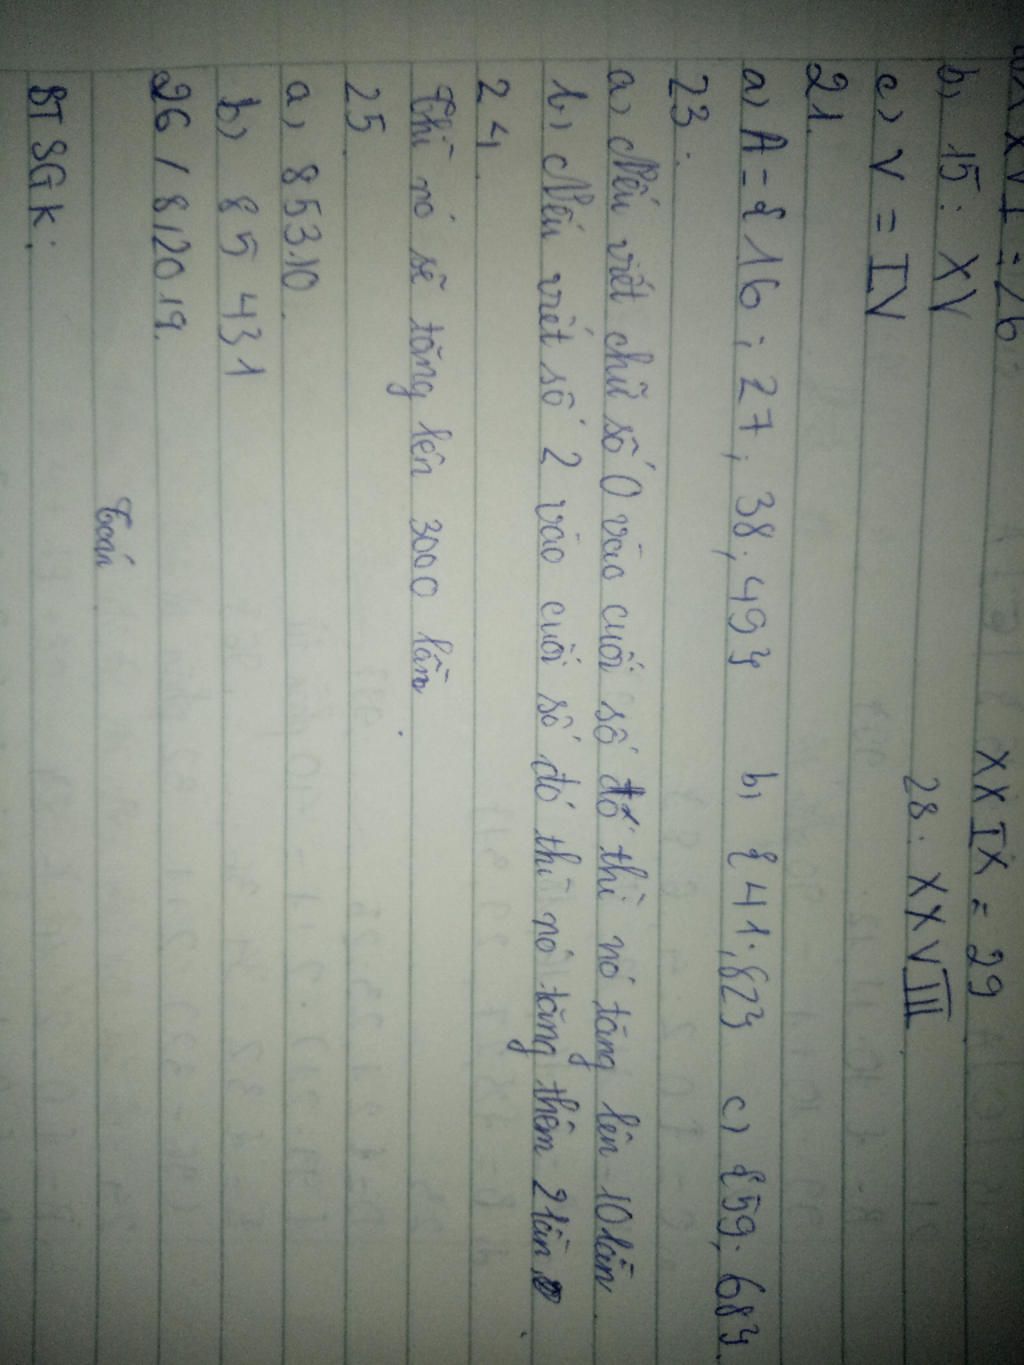 XXVI = 26 XXIX = 29
b, 15: XV 28: XXVIII
c) V = IV
21.
a) A = {16; 27; 38; 49} b) {41; 82} c) {59; 68}.
23:
a) Nếu viết chữ số 0 vào cuối số đó thì nó tăng lên 10 lần
b) Nếu viết số 2 vào cuối số đó thì nó tăng thêm 2 lần
24.
Thì nó sẽ tăng lên 3000 lần.
25.
a) 85310
b) 85 431
26/8/2019.
Toán
BT SGK: